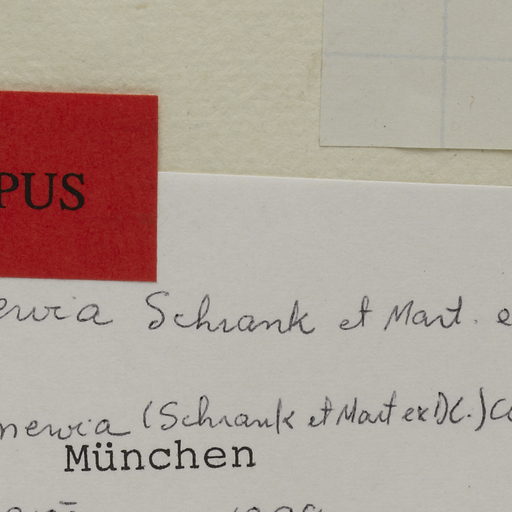 PUS
ervia Schrank et Mart. e
nervia (Schrank et Mart ex DC.) Co
München